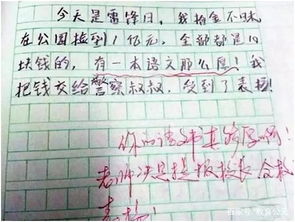 今天是雷锋日,我拾金不昧
在公园捡到1亿元,全部都是10
块钱的,有一本语文那么厚!我
把钱交给警察叔叔,受到了表扬!
你的语文书真够厚啊!
老师决定提报校长全校
表扬!